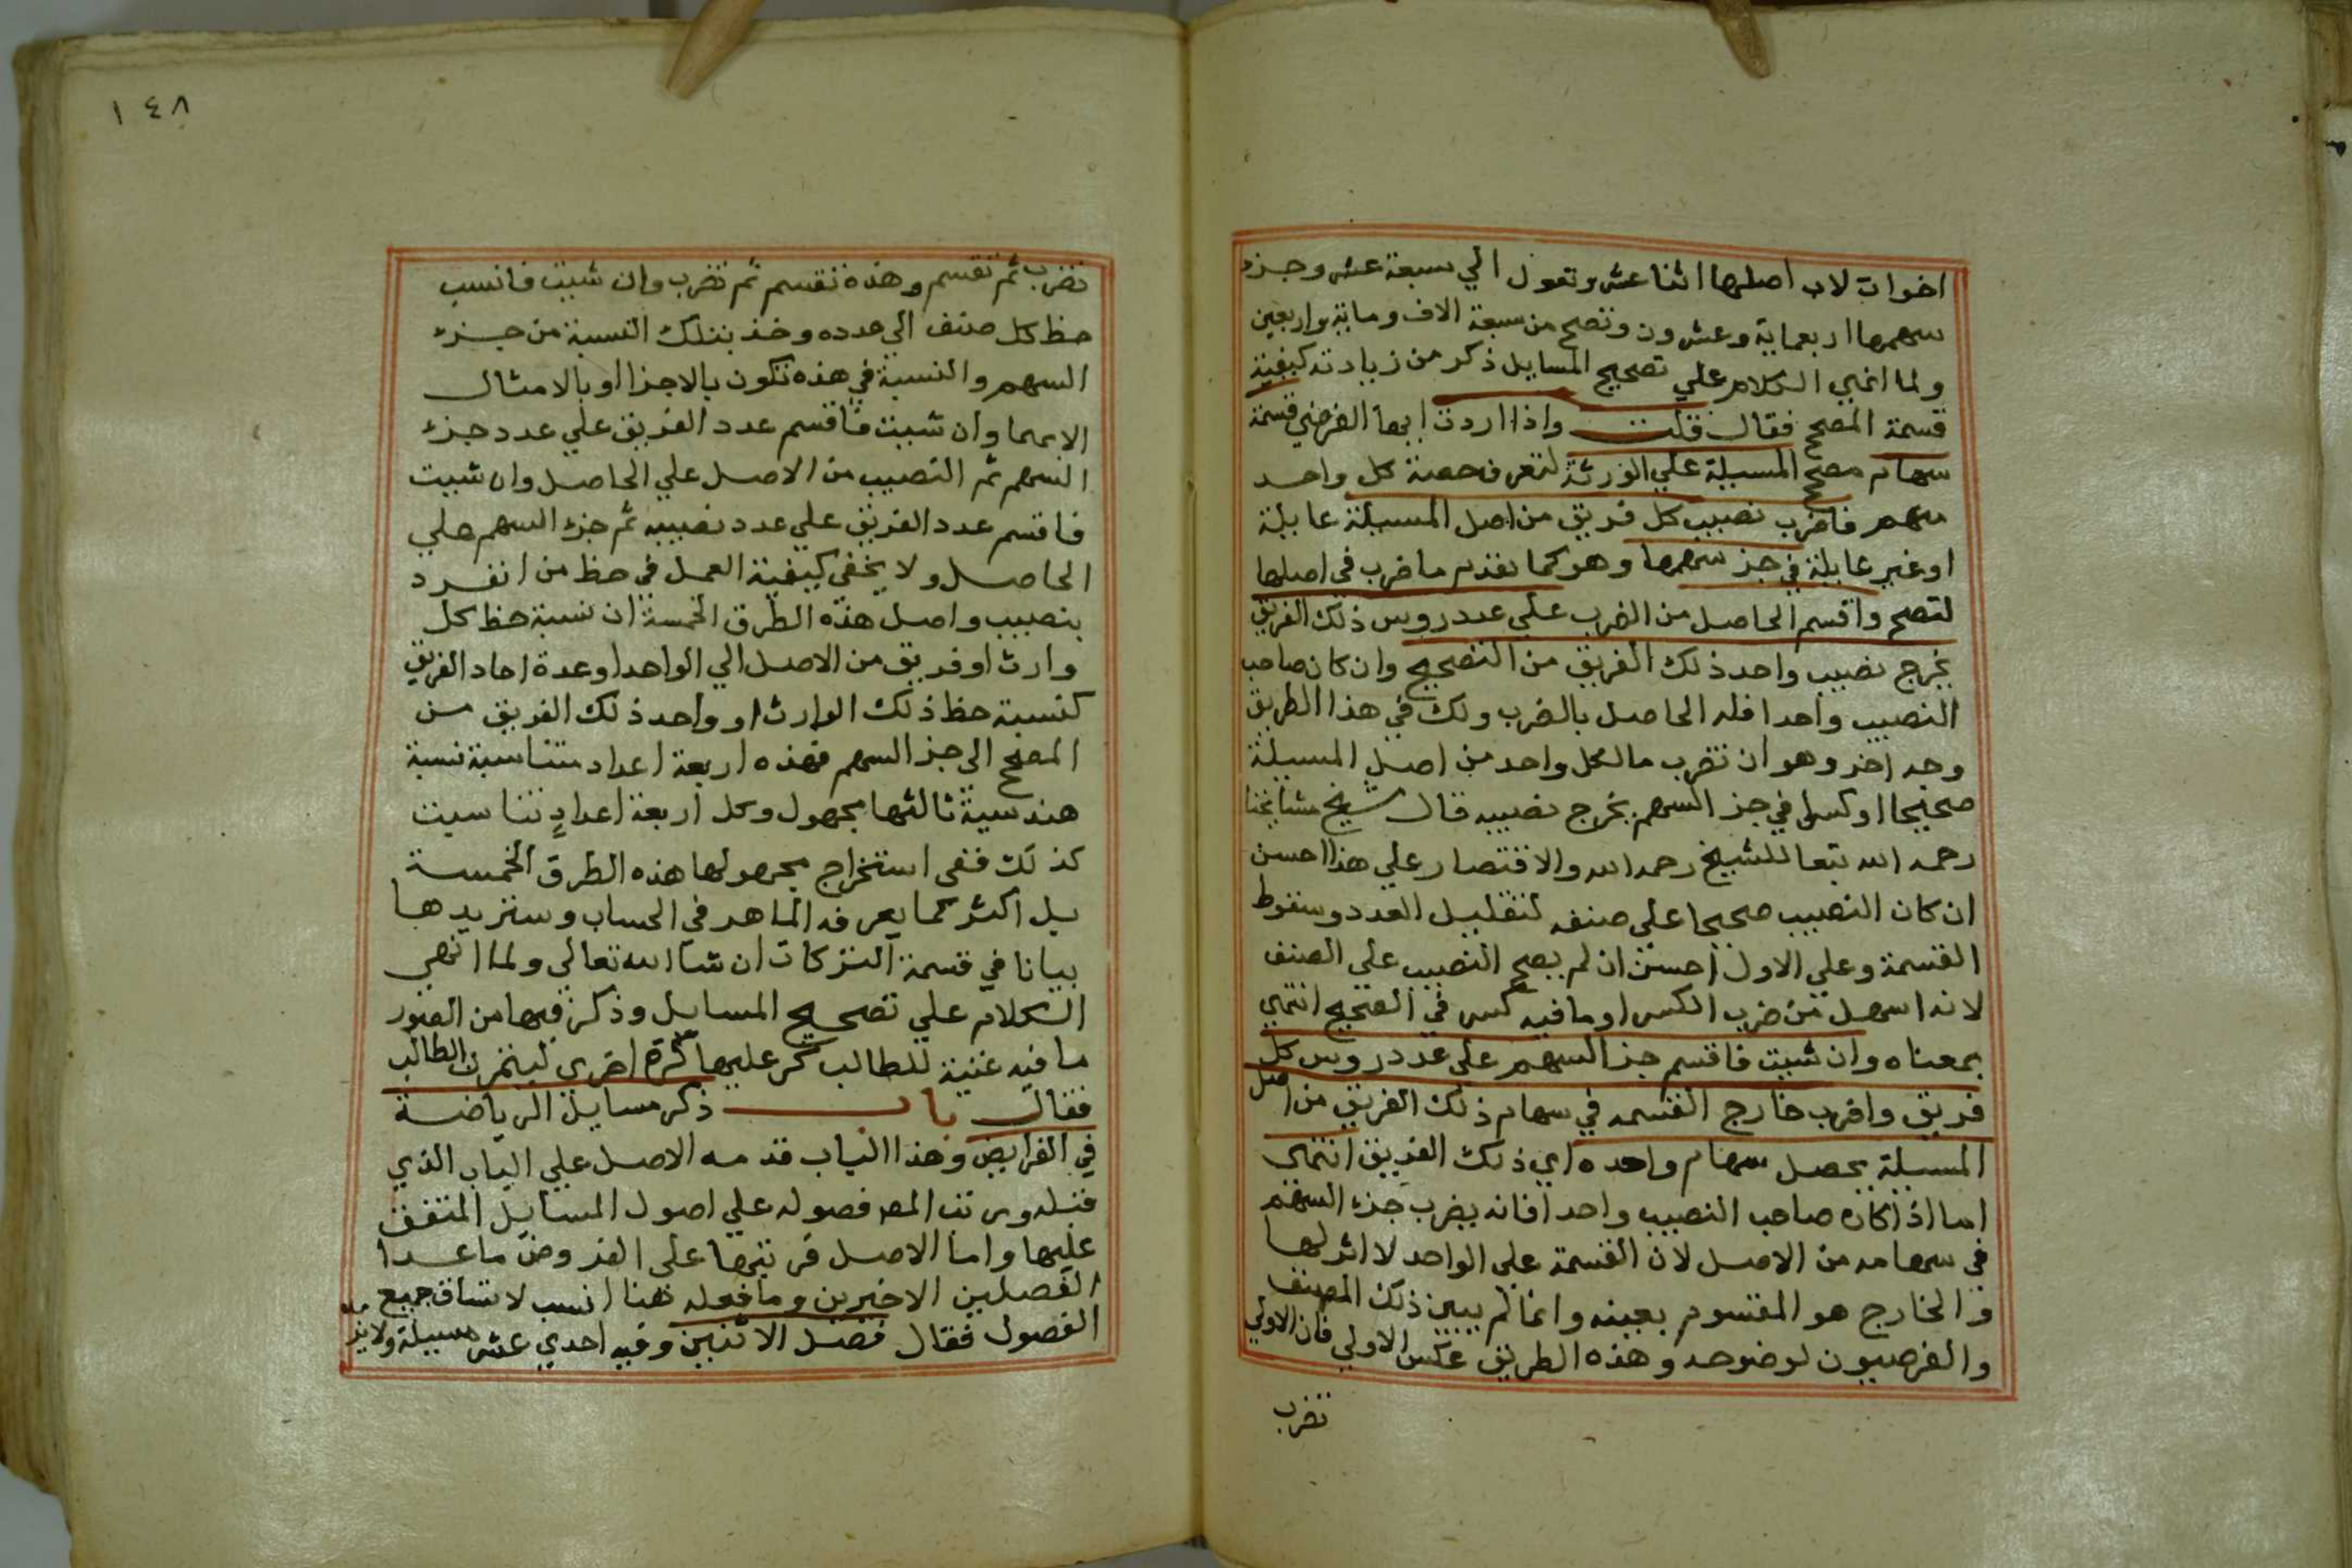 اخوات لاب اصلها اثنا عشر وتعول الي سبعة عشر وجزء
سهمها اربعماية وعشرون وتصح من سبعة الاف وماية واربعين
ولما انهي الكلام علي تصحيح المسايل ذكر من زيادته كيفية
قسمة المصحح فقال قلت واذا اردت ايها الفرضي قسمة
سهام مصحح المسيلة علي الورثة لتعرف حصة كل واحد
منهم فاضرب نصيب كل فريق من اصل المسيلة عايلة
او غير عايلة في جز سهمها وهو كما تقدم ما ضرب في اصلها
لتصح واقسم الحاصل من الضرب علي عدد روس ذلك الفريق
يخرج نصيب واحد ذلك الفريق من التصحيح وان كان صاحب
النصيب واحدا فله الحاصل بالضرب ولك في هذا الطريق
وجه اخر وهو ان تضرب مالكل واحد من اصل المسيلة
صحيحا او كسرا في جز السهم يخرج نصيبه قال شيخ مشايخنا
رحمه الله تبعا للشيخ رحمه الله والاقتصار علي هذا احسن
ان كان النصيب صحيحا علي صنفه لتقليل العدد وسقوط
القسمة وعلي الاول احسن ان لم يصح النصيب علي الصنف
لانه اسهل من ضرب الكسر او ما فيه كسر في الصحيح انتهي
بمعناه وان شيت فاقسم جز السهم علي عدد روس كل
فريق واضرب خارج القسمه في سهام ذلك الفريق من اصل
المسيلة يحصل سهام واحده اي ذلك الفريق انتهي
اما اذا كان صاحب النصيب واحدا فانه يضرب جزء السهم
في سهامه من الاصل لان القسمة علي الواحد لا اثر لها
والخارج هو المقسوم بعينه وانما لم يبين ذلك المصنف
والفرضيون لوضوحه وهذه الطريق عكس الاولي فان الاولي
تضرب
١٤٨
تضرب ثم تقسم وهذه تقسم ثم تضرب وان شيت فانسب
حظ كل صنف الي عدده وخذ بتلك النسبة من جزء
السهم والنسبة في هذه تكون بالاجزا او بالامثال
الاعم وان شيت فاقسم عدد الفريق علي عدد جزء
السهم ثم النصيب من الاصل علي الحاصل وان شيت
فاقسم عدد الفريق علي عدد نصيبه ثم جزء السهم علي
الحاصل ولا يخفي كيفية العمل في حظ من انفرد
بنصيب واصل هذه الطرق الخمسة ان نسبة حظ كل
وارث او فريق من الاصل الي الواحد او عدة احاد الفريق
كنسبة حظ ذلك الوارث او واحد ذلك الفريق من
المصحح الي جز السهم فهذه اربعة اعداد متناسبة نسبة
هندسية ثالثها مجهول وكل اربعة اعدادٍ تناسبت
كذلك ففي استخراج مجهولها هذه الطرق الخمسة
بل اكثر كما يعرفه الماهر في الحساب وسنزيدها
بيانا في قسمة التركات ان شا الله تعالي ولما انهي
الكلام علي تصحيح المسايل وذكر فيها من الصور
ما فيه غنية للطالب كر عليها كرة اخري ليتمرن الطالب
فقال باب ذكر مسايل الرياضة
في الفرايض وهذا الباب قدمه الاصل علي الباب الذي
قبله ورتب المص فصوله علي اصول المسايل المتفق
عليها واما الاصل فرتبها علي الفروض ما عدا
الفصلين الاخيرين وما فعله هنا انسب لاتساق جميع
الفصول فقال فصل الاثنين وفيه احدي عشر مسيلة